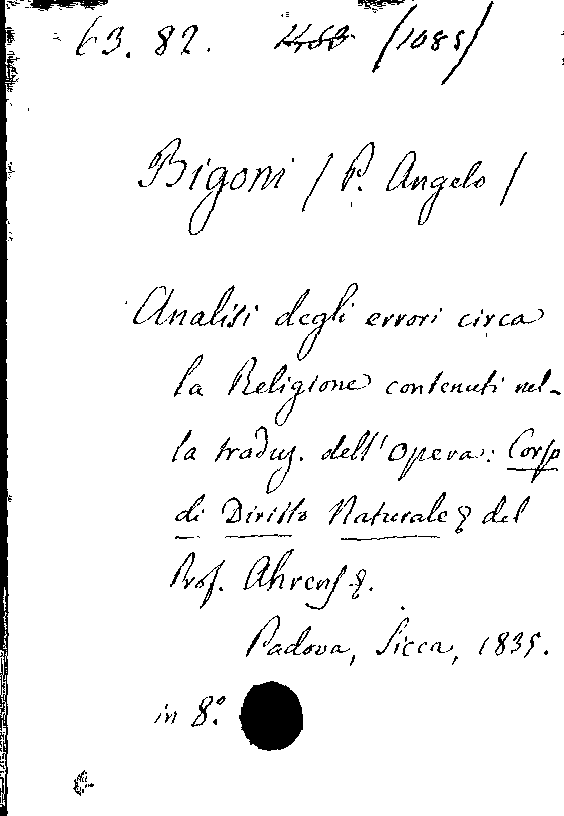 63. 82. (1085)
Bigoni (P. Angelo)
Analisi degli errori circa
la Religione contenuti nel-
la traduz. dell'Opera: Corso
di Diritto Naturale & del
Prof. Ahrens &.
Padova, Sicca, 1835.
in 8º.